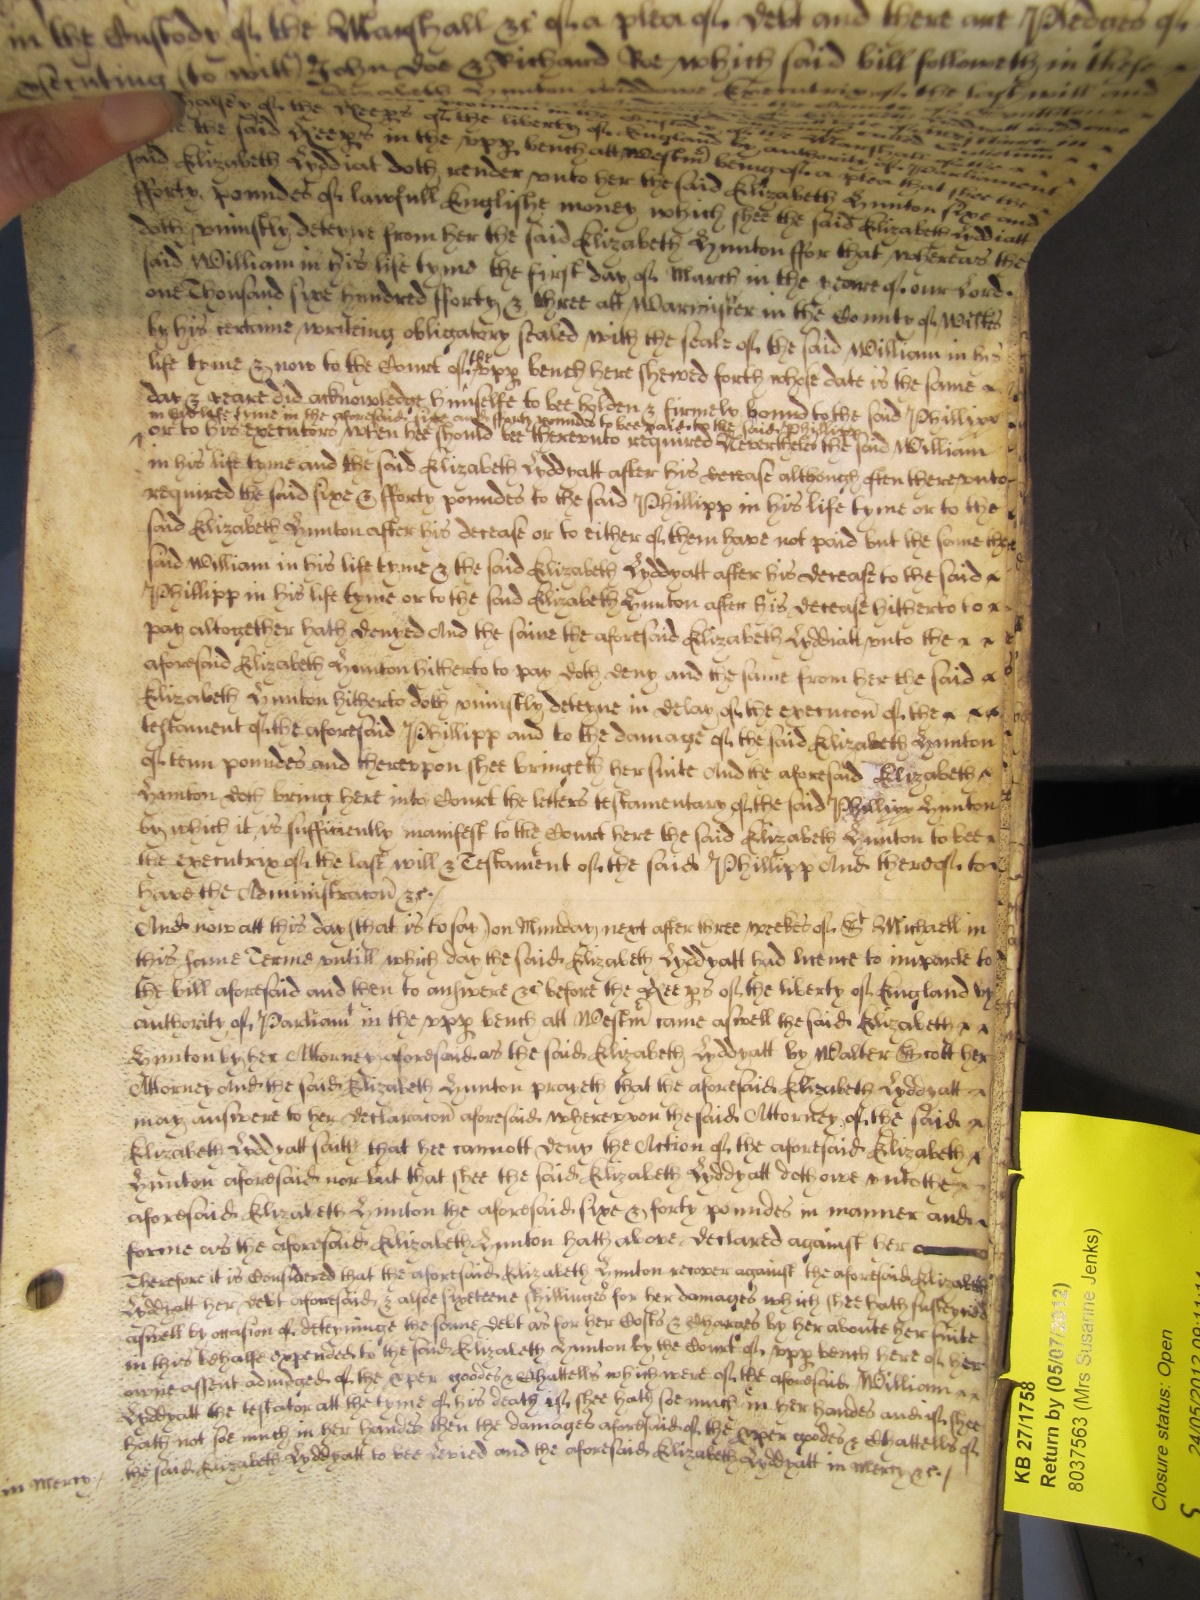 in the Custody of the Marshall &c of a plea of debt and there are Pledges of
prosecuting (to witt) John Doe & Richard Roe which said bill followeth in these
Elizabeth Lynton widdowe Executrix of the last will and
of the Keeps of the liberty of England by authority of Parliament
the said Keeps in the upp bench att Westm being of a plea that shee the
said Elizabeth Lyddiat doth render unto her the said Elizabeth Lynton sixe and
fforty poundes of lawfull Englishe money which shee the said Elizabeth Lyddiatt
doth uniustly deteyne from her the said Elizabeth Lynton ffor that whereas the
said William in his life tyme the first day of March in the yeare of our Lord
one Thousand sixe hundred fforty & three att Warmister in the County of Wiltes
by his certaine writeing obligatory sealed with the seale of the said William in his
life tyme & now to the Court of the upp bench here shewed forth whose date is the same
day & yeare did acknowledge himselfe to bee holden & firmely bound to the said Phillipp
in his life tyme in the aforesaid sixe and fforty poundes to bee paid to the said Phillipp
or to his executors when hee should bee thereunto required Nevertheles the said William
in his life tyme and the said Elizabeth Lyddyatt after his decease although often thereunto
required the said sixe & fforty poundes to the said Phillipp in his life tyme or to the
said Elizabeth Lynton after his decease or to either of them have not paid but the same the
said William in his life tyme & the said Elizabeth Lyddyatt after his decease to the said
Phillipp in his life tyme or to the said Elizabeth Lynton after his decease hitherto to
pay altogether hath denyed And the same the aforesaid Elizabeth Lyddiatt unto the
aforesaid Elizabeth Lynton hitherto to pay doth deny and the same from her the said
Elizabeth Lynton hitherto doth uniustly deteyne in delay of the execucon of the
testament of the aforesaid Phillipp and to the damage of the said Elizabeth Lynton
of tenn poundes and thereupon shee bringeth her suite And the aforesaid Elizabeth
Lynton doth bring here into Court the letters testamentary of the said Phillipp Lynton
by which it is sufficiently manifest to the Court here the said Elizabeth Lynton to bee
the executrix of the last will & Testament of the said Phillipp And thereof to
have the Administracon &c.
And now att this day (that is to say) on Munday next after three weekes of St Michaell in
this same Terme untill which day the said Elizabeth Lyddyatt had licence to imparle to
the bill aforesaid and then to answere &c before the Keeps of the liberty of England by
authority of Parliamt in the upp bench att Westm came aswell the said Elizabeth
Lynton by her Attorney aforesaid as the said Elizabeth Lyddyatt by Walter Scott her
Attorney And the said Elizabeth Lynton prayeth that the aforesaid Elizabeth Lyddyatt
may answere to her declaracon aforesaid whereupon the said Attorney of the said
Elizabeth Lyddyatt saith that hee cannott deny the Action of the aforesaid Elizabeth
Lynton aforesaid nor but that shee the said Elizabeth Lyddyatt doth owe unto the
aforesaid Elizabeth Lynton the aforesaid sixe & forty poundes in manner and
forme as the aforesaid Elizabeth Lynton hath above declared against her
Therefore it is Considered that the aforesaid Elizabeth Lynton recover against the aforesaid Elizabeth
Lyddyatt her debt aforesaid & alsoe sixteene shillinges for her damages which shee hath susteyned
aswell by occasion of deteyninge the same debt as for her Costs & Charges by her aboute her suite
in this behalfe expended to the said Elizabeth Lynton by the Court of upp bench here of her
owne assent adiudged of the goodes & Chattells which were of the aforesaid William
Lyddyatt the testator att the tyme of his death if shee hath soe much in her handes and if shee
hath not soe much in her handes then the damages aforesaid of the goodes & Chattells of
the said Elizabeth Lyddyatt to bee levied and the aforesaid Elizabeth Lyddyatt in Mercy &c.
in Mercy
KB 27/1758
Return by (05/07/2012)
8037563 (Mrs Susanne Jenks)
Closure status: Open